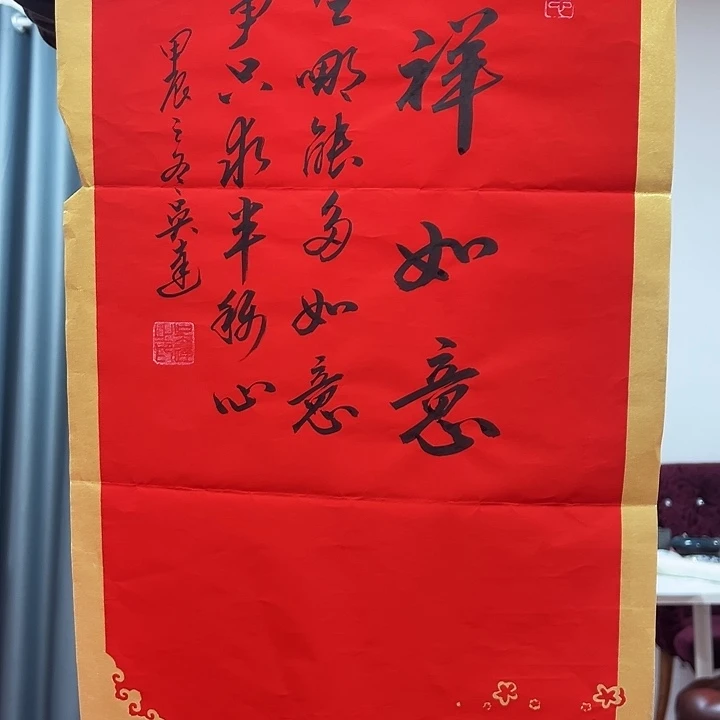 祥如意
哪能多如意
事只求半称心
甲辰之冬吴连